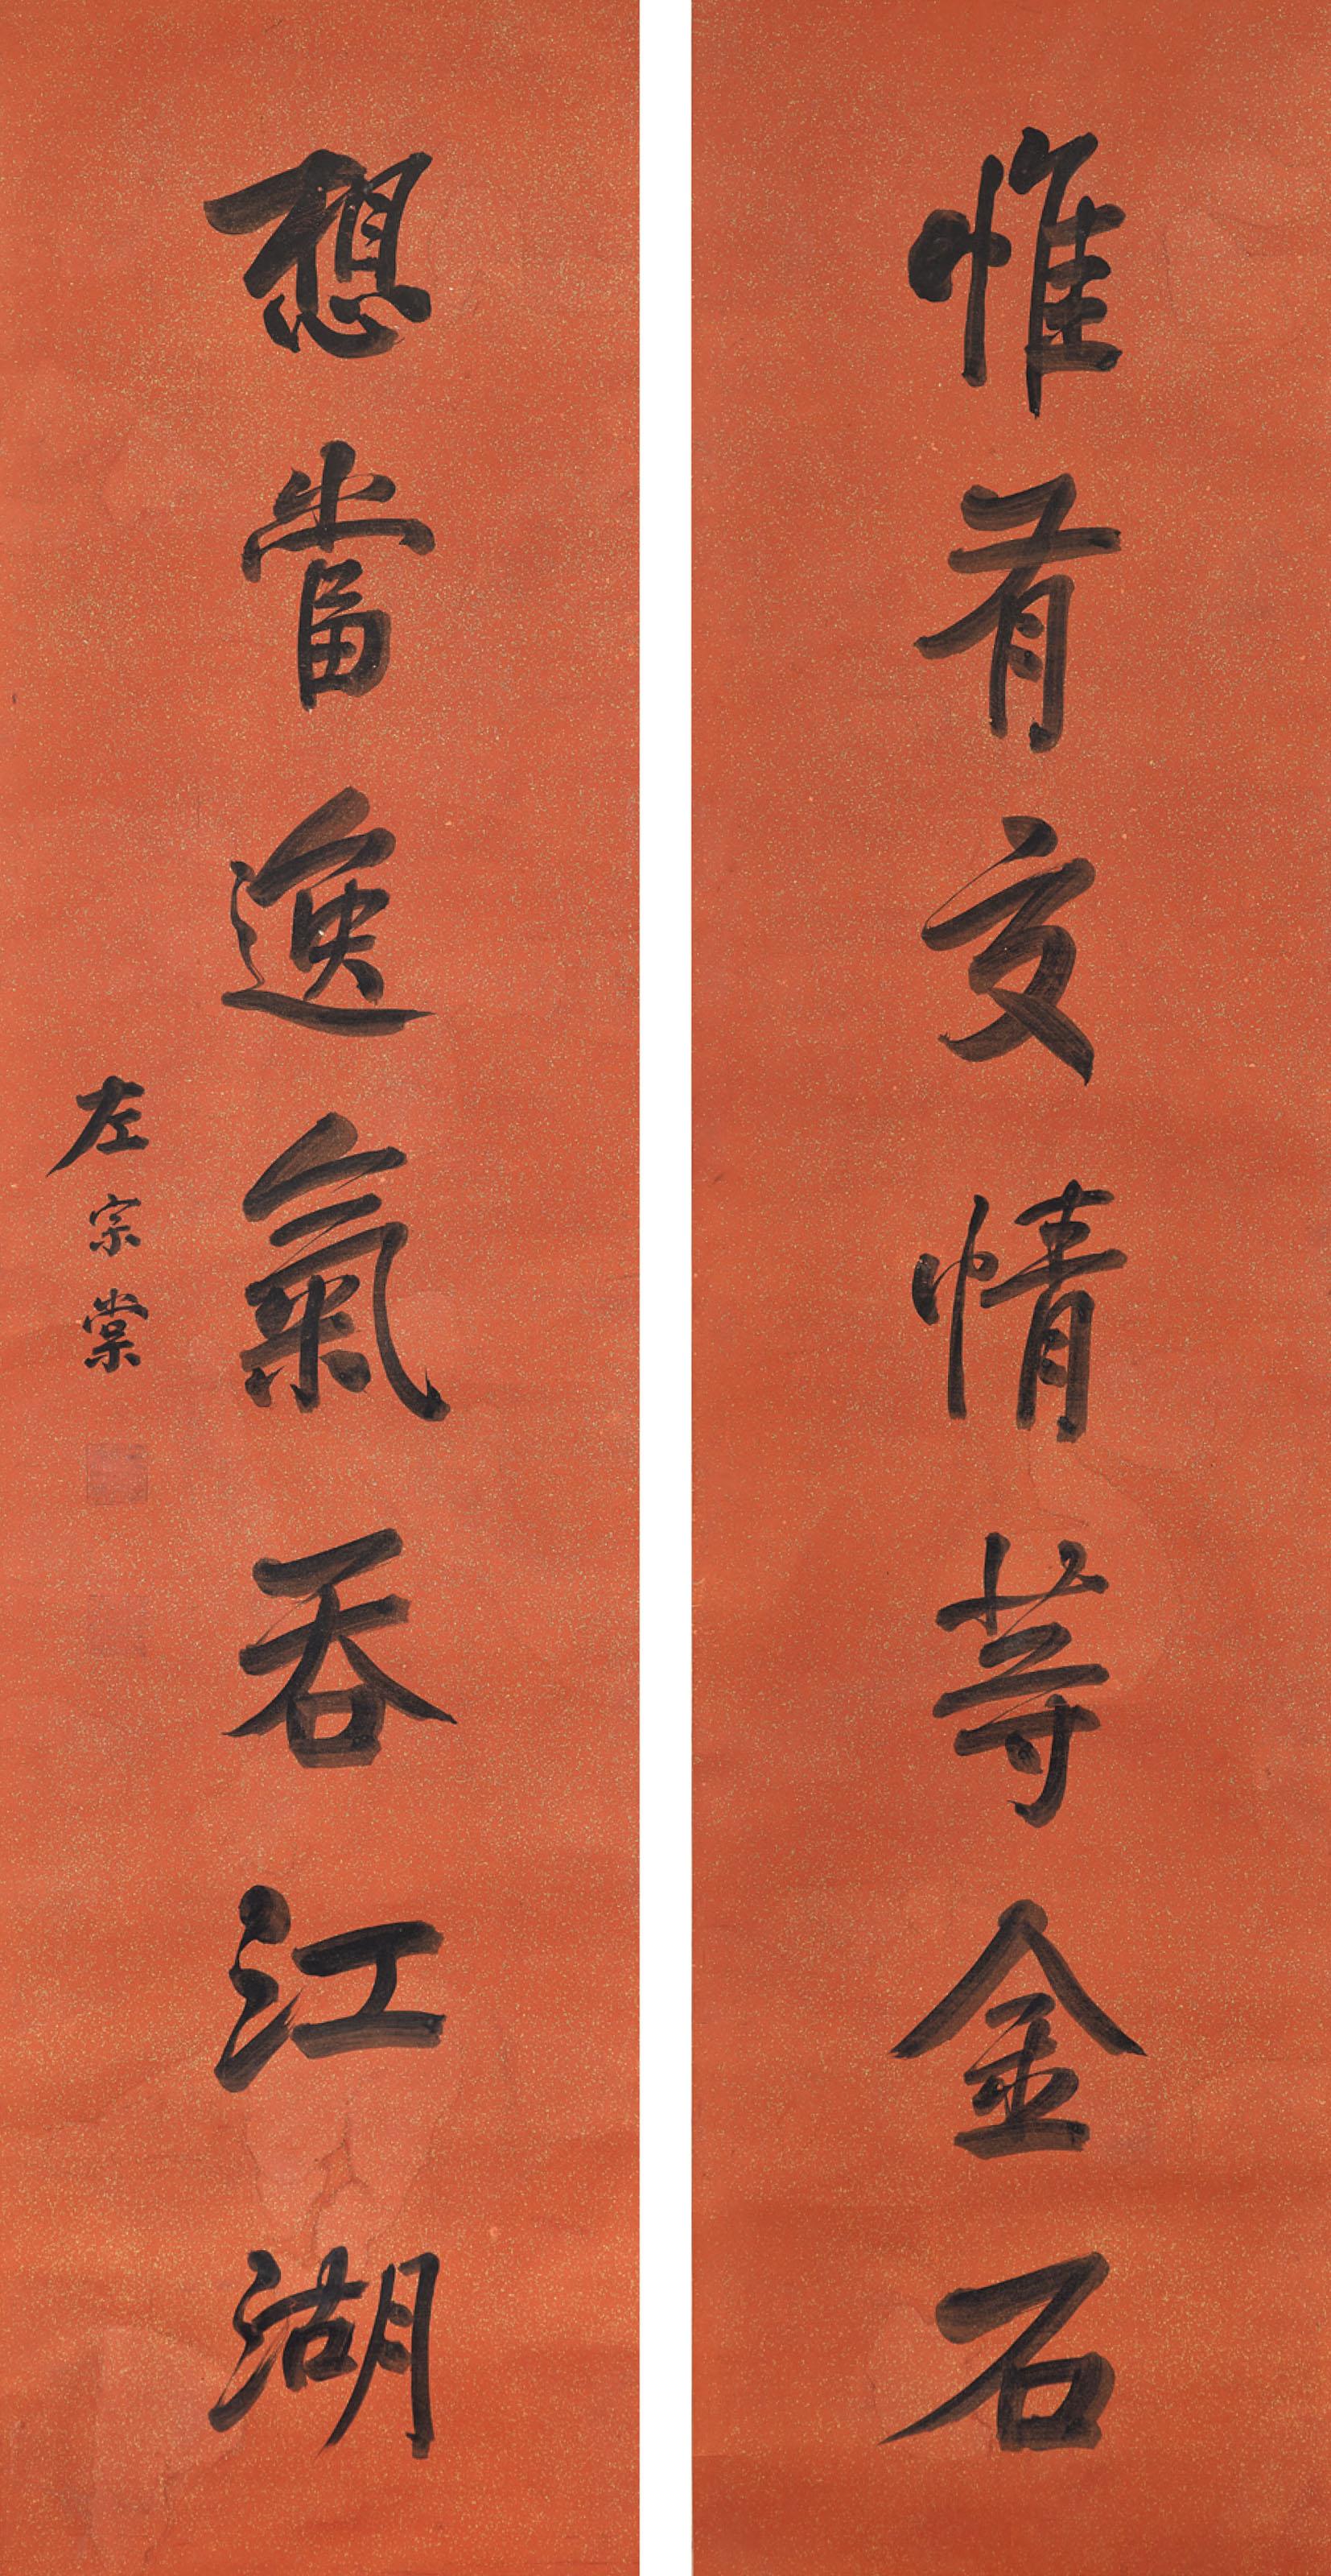 惟有交情等金石
想當逸氣吞江湖
左宗棠